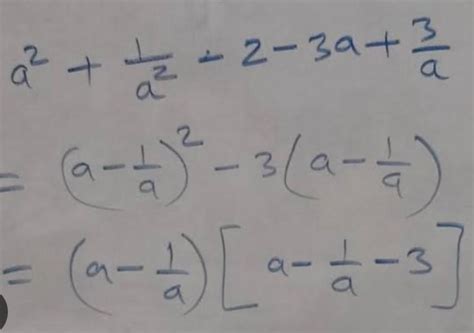 a² + 1/a² - 2 - 3a + 3/a
= (a - 1/a)² - 3(a - 1/a)
= (a - 1/a)[a - 1/a - 3]